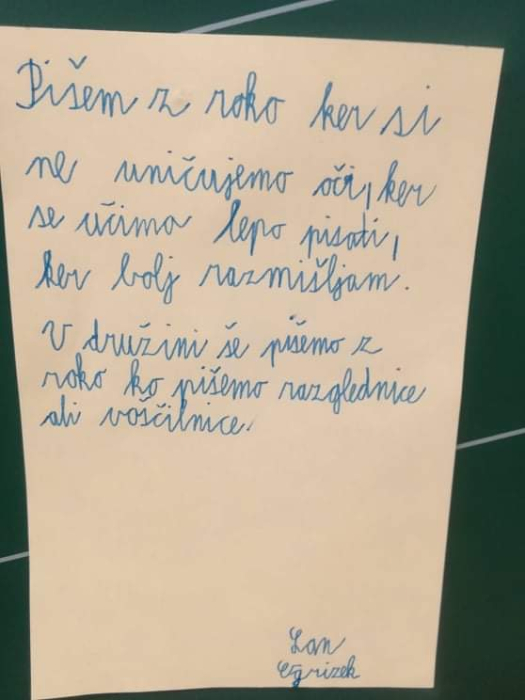 Pišem z roko ker si
ne uničujemo oči, ker
se učimo lepo pisati,
ker bolj razmišljam.
V družini še pišemo z
roko ko pišemo razglednice
ali voščilnice.
Lan
Ogrizek